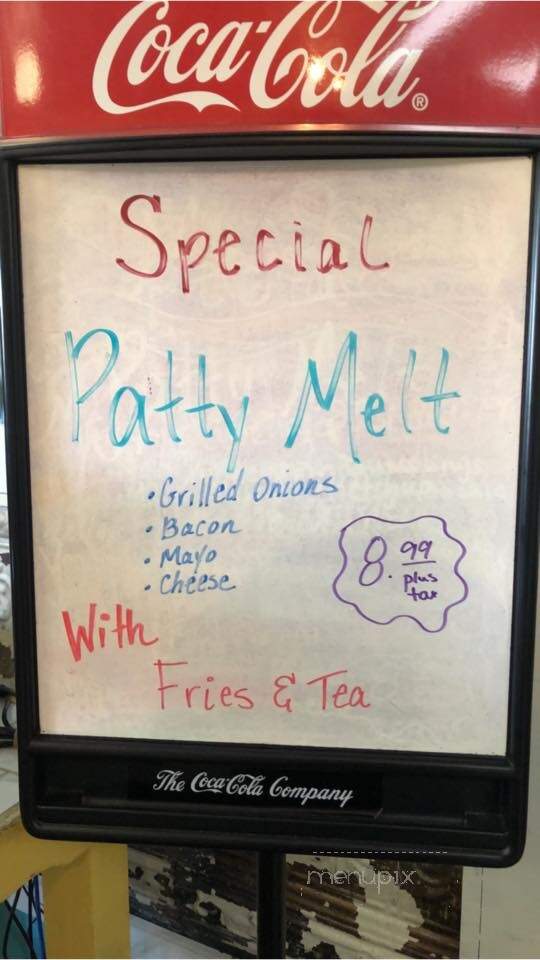 Coca-Cola®
Special
Patty Melt
• Grilled Onions
• Bacon
• Mayo
• Cheese
8.99
plus
tax
With
Fries & Tea
The Coca-Cola Company
menupix